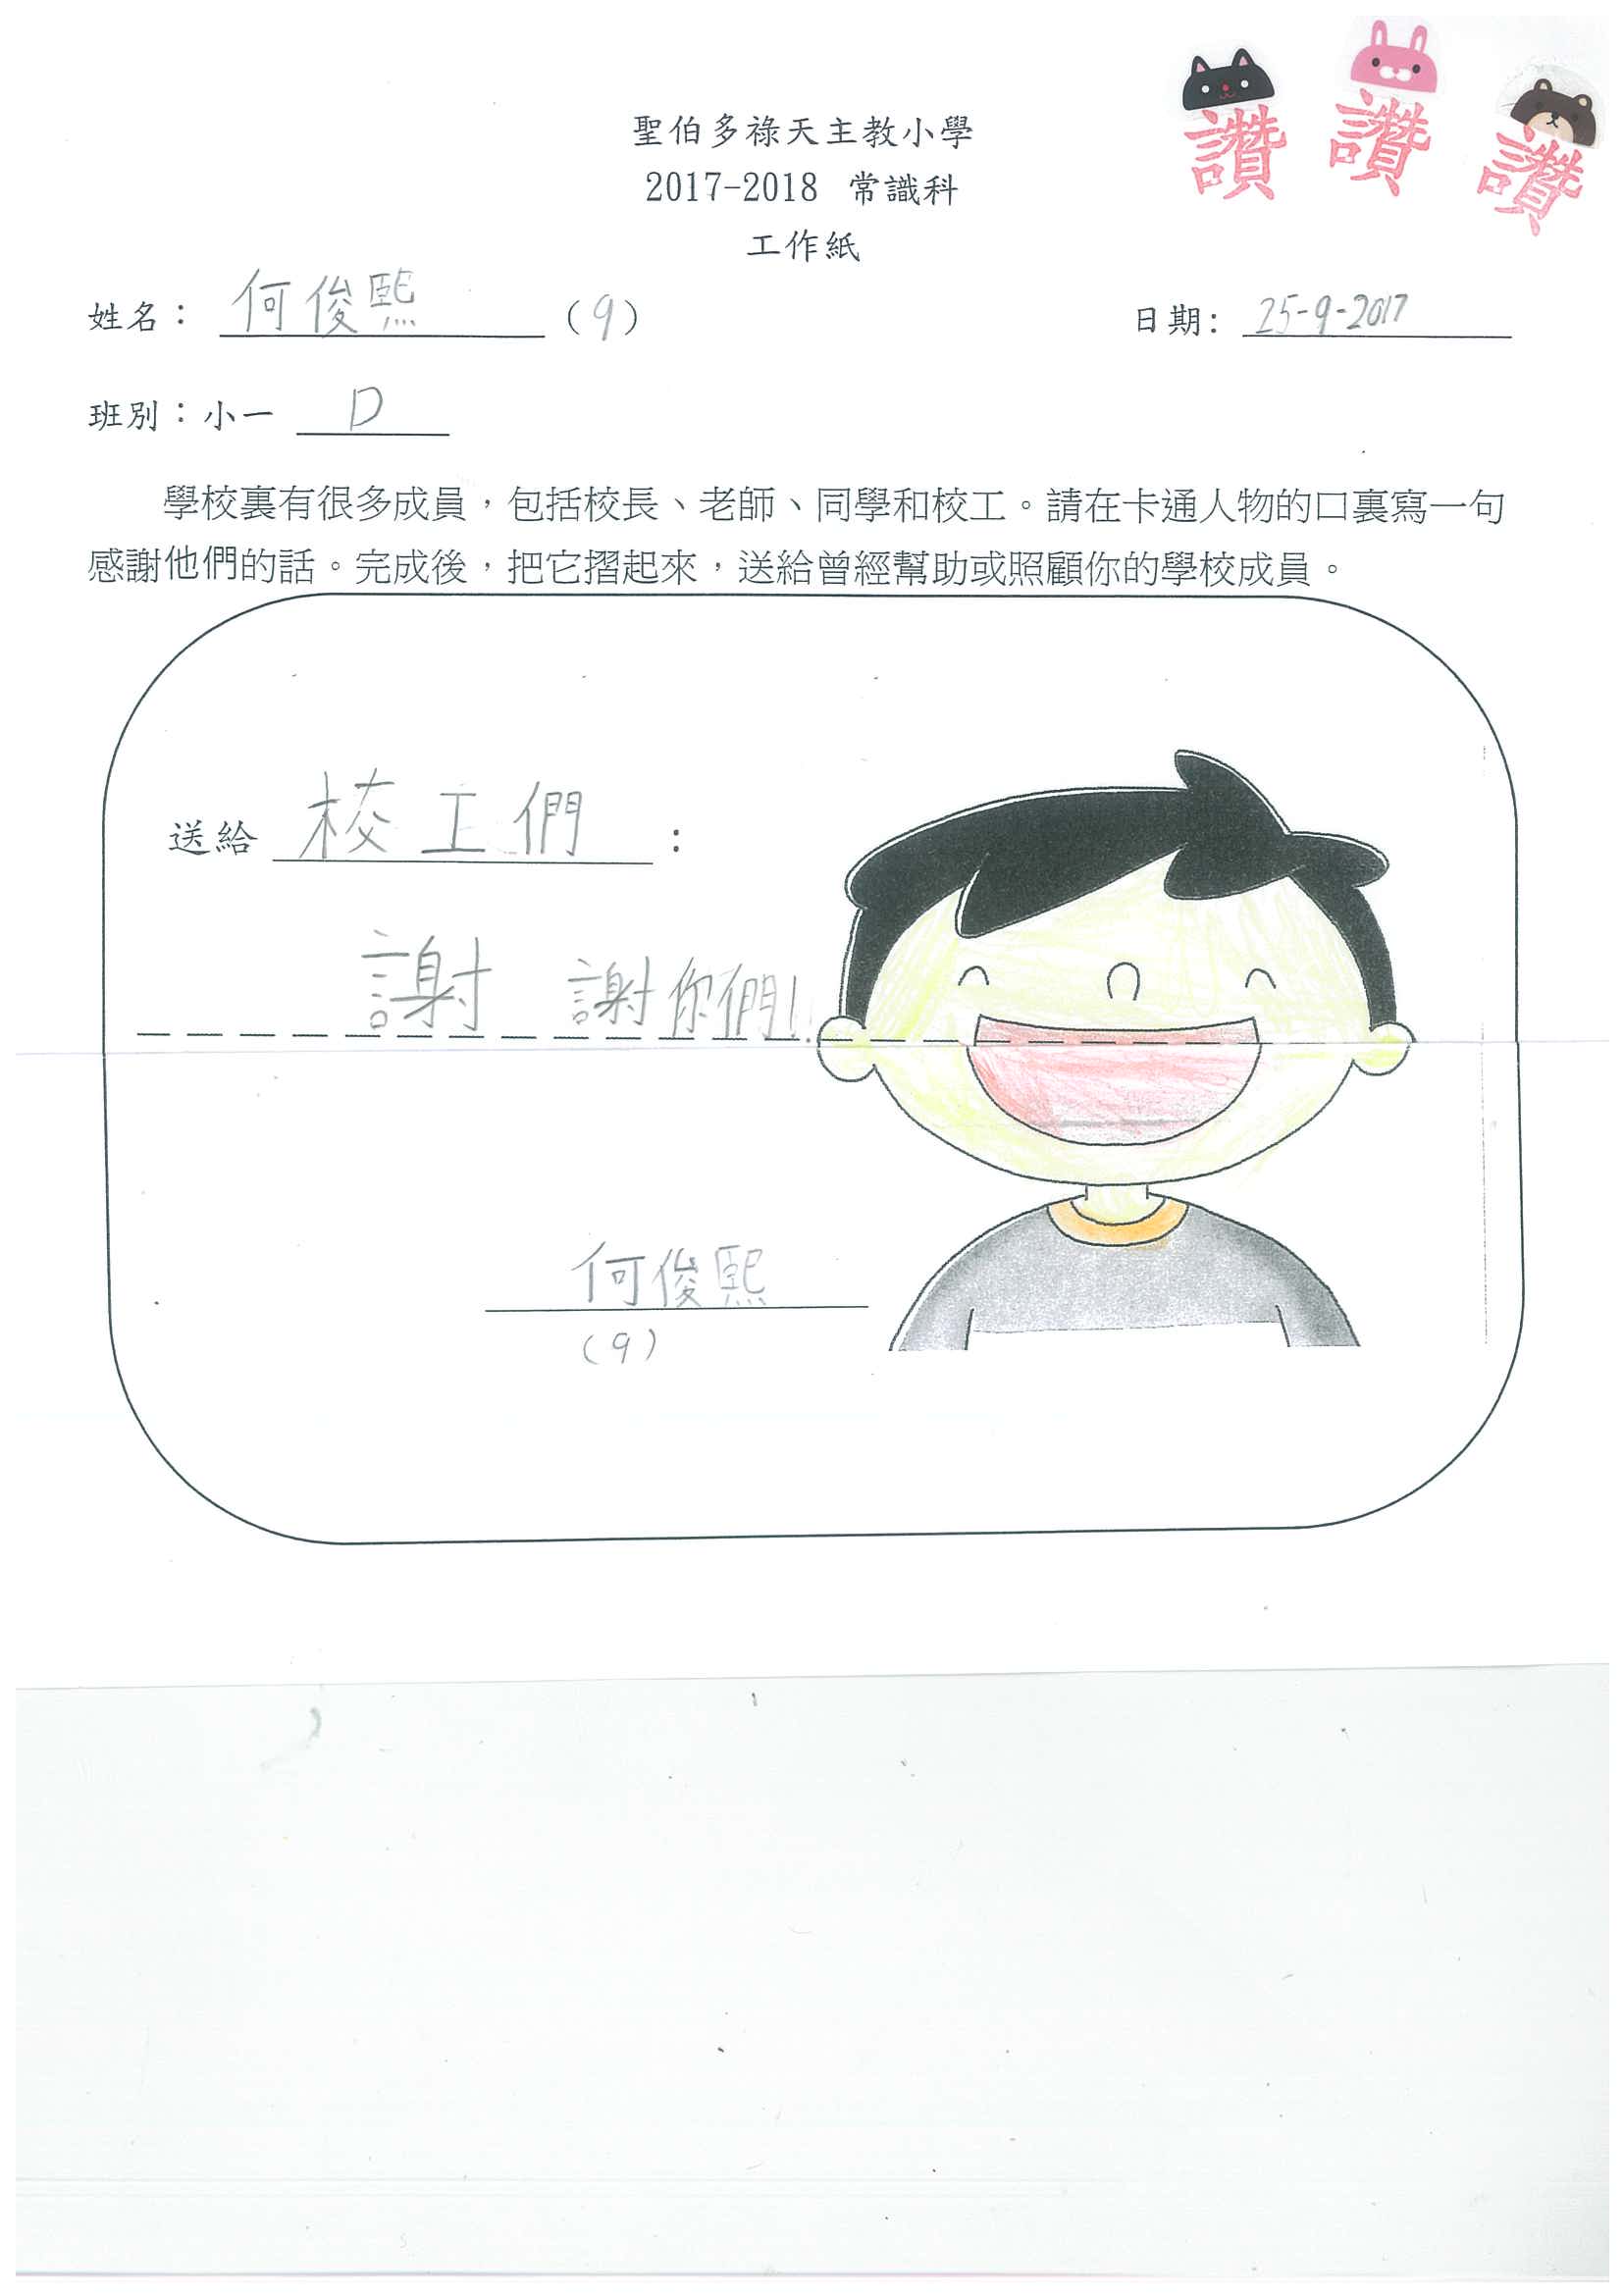 讚 讚 讚
聖伯多祿天主教小學
2017-2018 常識科
工作紙
姓名： 何俊熙 (9) 日期: 25-9-2017
班別：小一 D
學校裏有很多成員，包括校長、老師、同學和校工。請在卡通人物的口裏寫一句
感謝他們的話。完成後，把它摺起來，送給曾經幫助或照顧你的學校成員。
送給 校工們 :
謝 謝你們!!
何俊熙
(9)